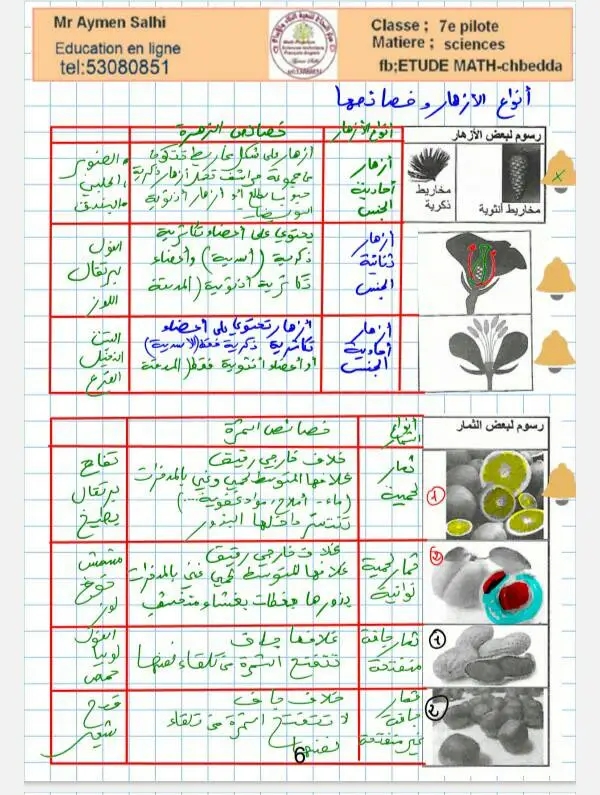 Mr Aymen Salhi
Education en ligne
tel:53080851
Classe ; 7e pilote
Matiere ; sciences
fb;ETUDE MATH-chbedda
أنواع الأزهار وخصائصها
رسوم لبعض الأزهار
أنواع الأزهار
خصائص الزهرة
مخاريط ذكرية
مخاريط أنثوية
أزهار
أحادية
الجنس
أزهار على شكل مخاريط تتكون
الصنوبر
الحلبي
البندق
أزهار
ثنائية
الجنس
يحتوي على أعضاء تكاثرية
ذكرية (أسدية) وأعضاء
تكاثرية أنثوية (المدقة
الفول
برتقال
اللوز
أزهار
أحادية
الجنس
أزهار تحتوي على أعضاء
تكاثرية ذكرية فقط (الأسدية)
أو أعضاء أنثوية فقط (المدقة
التين
النخيل
القرع
رسوم لبعض الثمار
أنواع الثمار
خصائص الثمرة
1
ثمار
لحمية
غلاف خارجي رقيق
غلافها المتوسط لحمي وغني بالمدخرات
(ماء - أملاح، مواد عضوية...)
تنتشر داخلها البذور
تفاح
برتقال
بطيخ
2
ثمار لحمية
نواتية
غلاف خارجي رقيق
غلافها المتوسط لحمي غني بالمدخرات
بذورها مغطات بغشاء متخشب
مشمش
خوخ
لوز
1
ثمار جافة
متفتحة
غلافها جاف
تتفتح الثمرة من تلقاء نفسها
الفول
لوبيا
حمص
2
ثمار
جافة
غير متفتحة
غلاف جاف
لا تتفتح الثمرة من تلقاء
نفسها
قمح
شعير
6